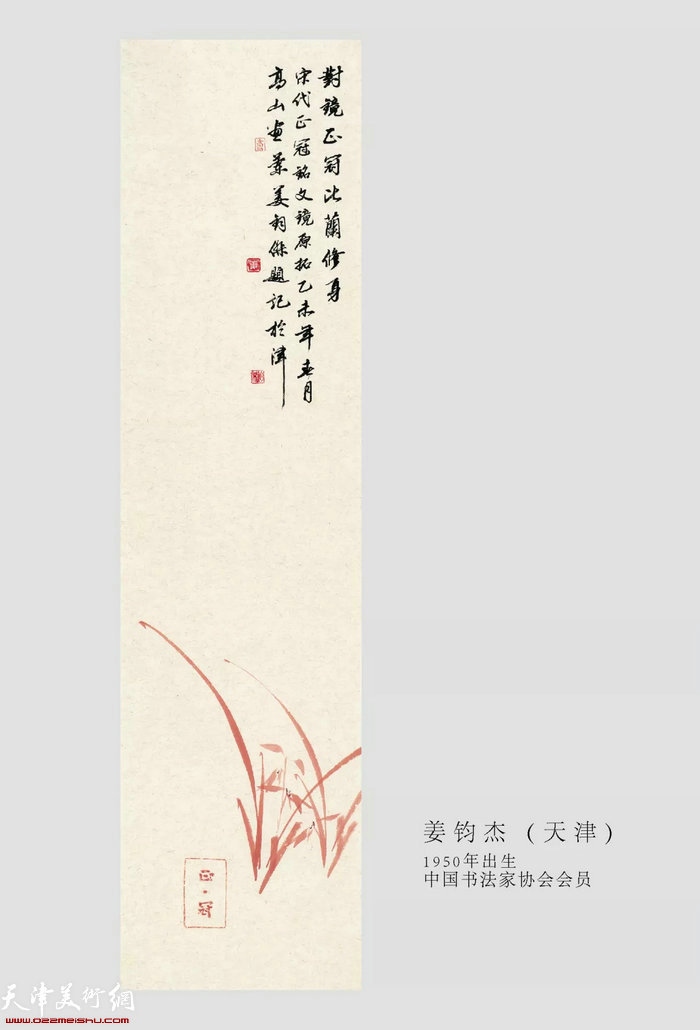 對鏡正冠比蘭修身
宋代正冠銘文鏡原拓乙未年春月
高山畫蘭姜鈞傑題記於津
正·冠
姜钧杰(天津)
1950年出生
中国书法家协会会员
天津美術網
www.022meishu.com